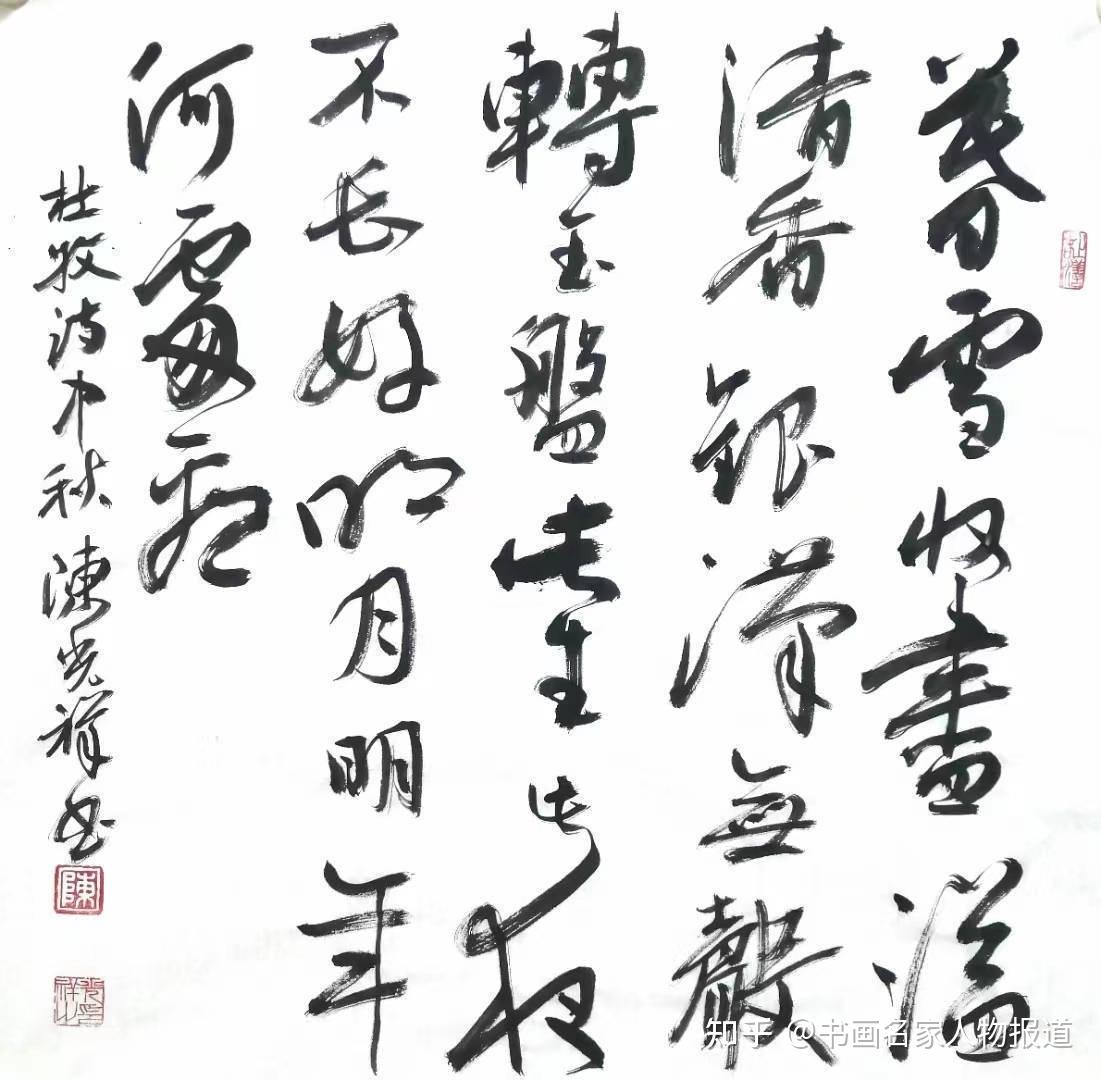 暮雪收盡溢
清香銀漢無聲
轉玉盤此生此夜
不长好明月明年
何處看
杜牧诗中秋 陳光祥书
陳
知乎 @书画名家人物报道